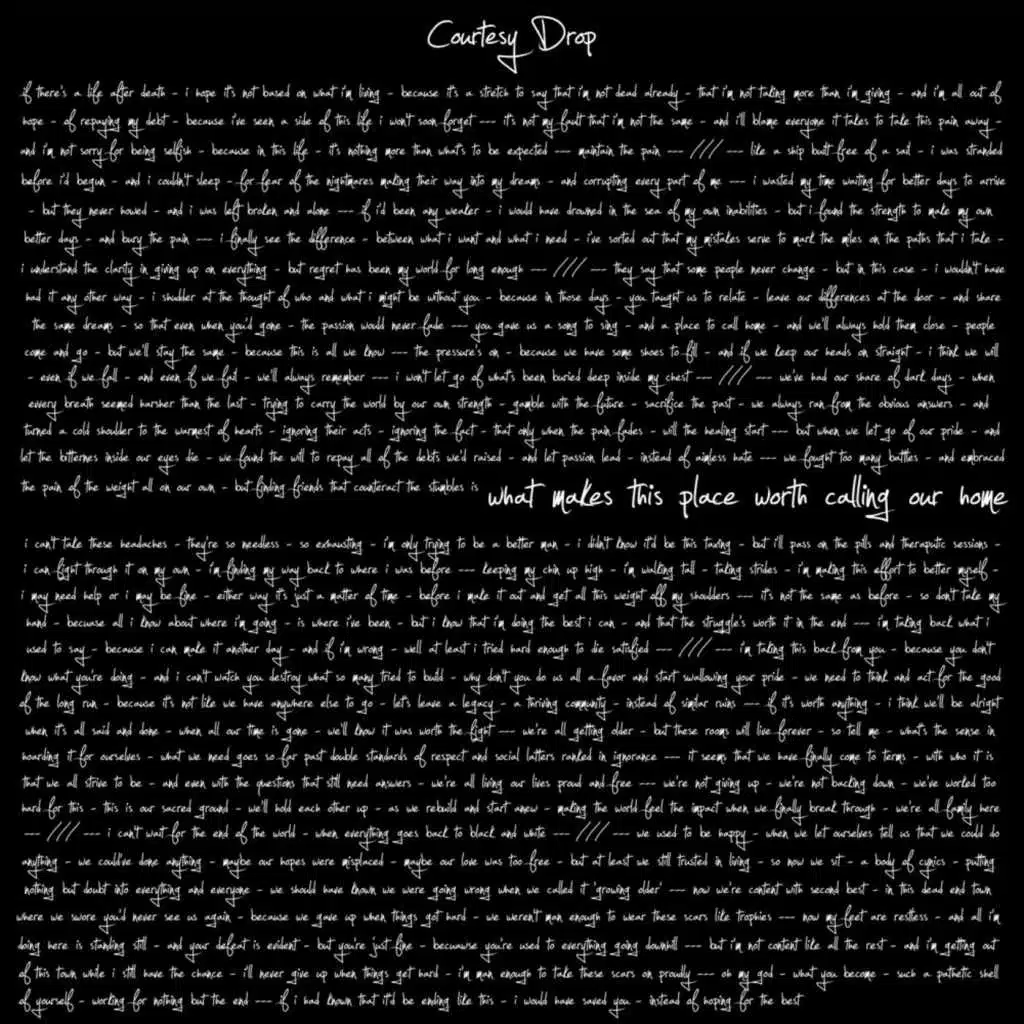 Courtesy Drop
if there's a life after death - i hope it's not based on what i'm living - because it's a stretch to say that i'm not dead already - that i'm not taking more than i'm giving - and i'm all out of
hope - of repaying my debt - because i've seen a side of this life i won't soon forget --- it's not my fault that i'm not the same - and i'll blame everyone it takes to take this pain away -
and i'm not sorry for being selfish - because in this life - it's nothing more than what's to be expected --- maintain the pain --- //// --- like a ship built free of a sail - i was stranded
before i'd begun - and i couldn't sleep - for fear of the nightmares making their way into my dreams - and corrupting every part of me --- i wasted my time waiting for better days to arrive
- but they never howed - and i was left broken and alone --- if i'd been any weaker - i would have drowned in the sea of my own inabilities - but i found the strength to make my own
better days - and bury the pain --- i finally see the difference - between what i want and what i need - i've sorted out that my mistakes serve to mark the miles on the paths that i take -
i understand the clarity in giving up on everything - but regret has been my world for long enough --- //// --- they say that some people never change - but in this case - i wouldn't have
had it any other way - i shudder at the thought of who and what i might be without you - because in those days - you taught us to relate - leave our differences at the door - and share
the same dreams - so that even when you'd gone - the passion would never fade --- you gave us a song to sing - and a place to call home - and we'll always hold them close - people
come and go - but we'll stay the same - because this is all we know --- the pressure's on - because we have some shoes to fill - and if we keep our heads on straight - i think we will
- even if we fall - and even if we fail - we'll always remember --- i won't let go of what's been buried deep inside my chest --- //// --- we've had our share of dark days - when
every breath seemed harsher than the last - trying to carry the world by our own strength - gamble with the future - sacrifice the past - we always ran from the obvious answers - and
turned a cold shoulder to the warmest of hearts - ignoring their acts - ignoring the fact - that only when the pain fades - will the healing start --- but when we let go of our pride - and
let the bitternes inside our eyes die - we found the will to repay all of the debts we'd raised - and let passion lead - instead of aimless hate --- we fought too many battles - and embraced
the pain of the weight all on our own - but finding friends that counteract the stumbles is what makes this place worth calling our home
i can't take these headaches - they're so needless - so exhausting - i'm only trying to be a better man - i didn't know it'd be this taxing - but i'll pass on the pills and theraputic sessions -
i can fight through it on my own - i'm finding my way back to where i was before --- keeping my chin up high - i'm walking tall - taking strides - i'm making this effort to better myself -
i may need help or i may be fine - either way it's just a matter of time - before i make it out and get all this weight off my shoulders --- it's not the same as before - so don't take my
hand - becuase all i know about where i'm going - is where i've been - but i know that i'm doing the best i can - and that the struggle's worth it in the end --- i'm taking back what i
used to say - because i can make it another day - and if i'm wrong - well at least i tried hard enough to die satisfied --- //// --- i'm taking this back from you - because you don't
know what you're doing - and i can't watch you destroy what so many tried to build - why don't you do us all a favor and start swallowing your pride - we need to think and act for the good
of the long run - because it's not like we have anywhere else to go - let's leave a legacy - a thriving community - instead of similar ruins --- if it's worth anything - i think we'll be alright
when it's all said and done - when all our time is gone - we'll know it was worth the fight --- we're all getting older - but these rooms will live forever - so tell me - what's the sense in
hoarding it for ourselves - what we need goes so far past double standards of respect and social latters ranked in ignorance --- it seems that we have finally come to terms - with who it is
that we all strive to be - and even with the questions that still need answers - we're all living our lives proud and free --- we're not giving up - we're not backing down - we've worked too
hard for this - this is our sacred ground - we'll hold each other up - as we rebuild and start anew - making the world feel the impact when we finally break through - we're all family here
--- //// --- i can't wait for the end of the world - when everything goes back to black and white --- //// --- we used to be happy - when we let ourselves tell us that we could do
anything - we could've done anything - maybe our hopes were misplaced - maybe our love was too free - but at least we still trusted in living - so now we sit - a body of cynics - putting
nothing but doubt into everything and everyone - we should have known we were going wrong when we called it 'growing older' --- now we're content with second best - in this dead end town
where we swore you'd never see us again - because we gave up when things got hard - we weren't man enough to wear these scars like trophies --- now my feet are restless - and all i'm
doing here is standing still - and your defeat is evident - but you're just fine - becuause you're used to everything going downhill --- but i'm not content like all the rest - and i'm getting out
of this town while i still have the chance - i'll never give up when things get hard - i'm man enough to take these scars on proudly --- oh my god - what you become - such a pathetic shell
of yourself - working for nothing but the end --- if i had known that it'd be ending like this - i would have saved you - instead of hoping for the best